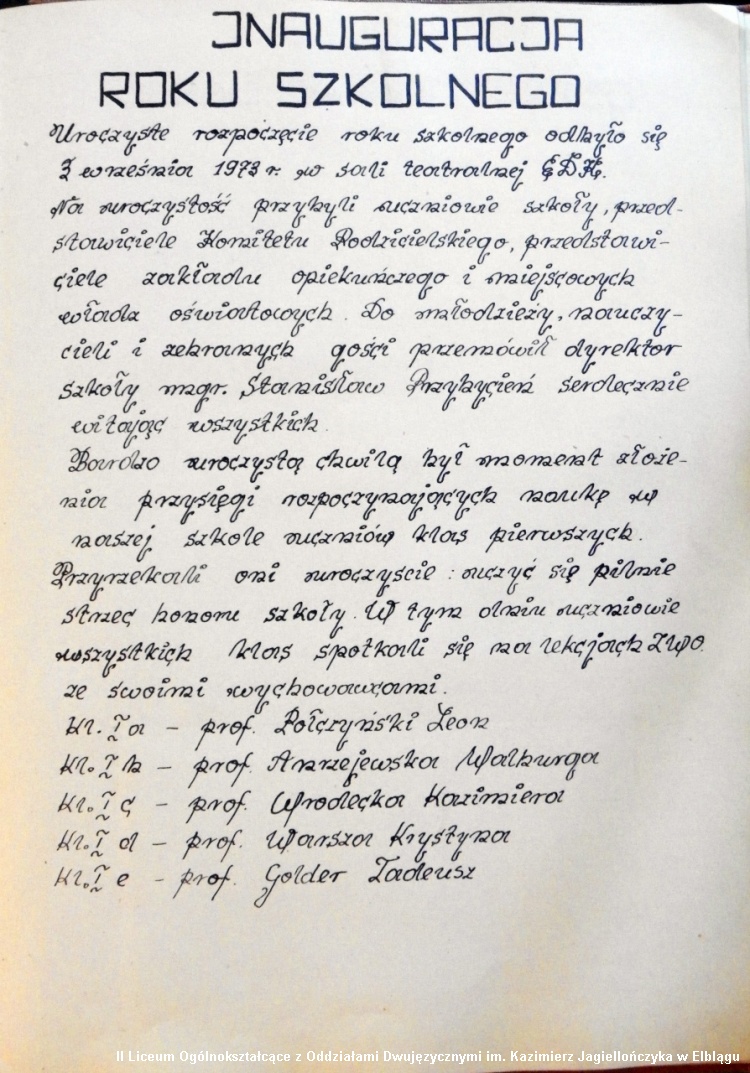 INAUGURACJA
ROKU SZKOLNEGO
Uroczyste rozpoczęcie roku szkolnego odbyło się
3 września 1973 r. w sali teatralnej EDK.
Na uroczystość przybyli uczniowie szkoły, przed-
stawiciele Komitetu Rodzicielskiego, przedstawi-
ciele zakładu opiekuńczego i miejscowych
władz oświatowych. Do młodzieży, nauczy-
cieli i zebranych gości przemówił dyrektor
szkoły mgr. Stanisław Przybycień serdecznie
witając wszystkich.
Bardzo uroczystą chwilą był moment złoże-
nia przysięgi rozpoczynających naukę w
naszej szkole uczniów klas pierwszych.
Przyrzekali oni uroczyście : uczyć się pilnie
strzec honoru szkoły. W tym dniu uczniowie
wszystkich klas spotkali się na lekcjach ZWO.
ze swoimi wychowawcami.
kl. I a - prof. Połczyński Leon
kl. I b - prof. Anzejewska Walburga
kl. I c - prof. Wrodecka Kazimiera
kl. I d - prof. Warsza Krystyna
kl. I e - prof. Golder Tadeusz
II Liceum Ogólnokształcące z Oddziałami Dwujęzycznymi im. Kazimierz Jagiellończyka w Elblągu